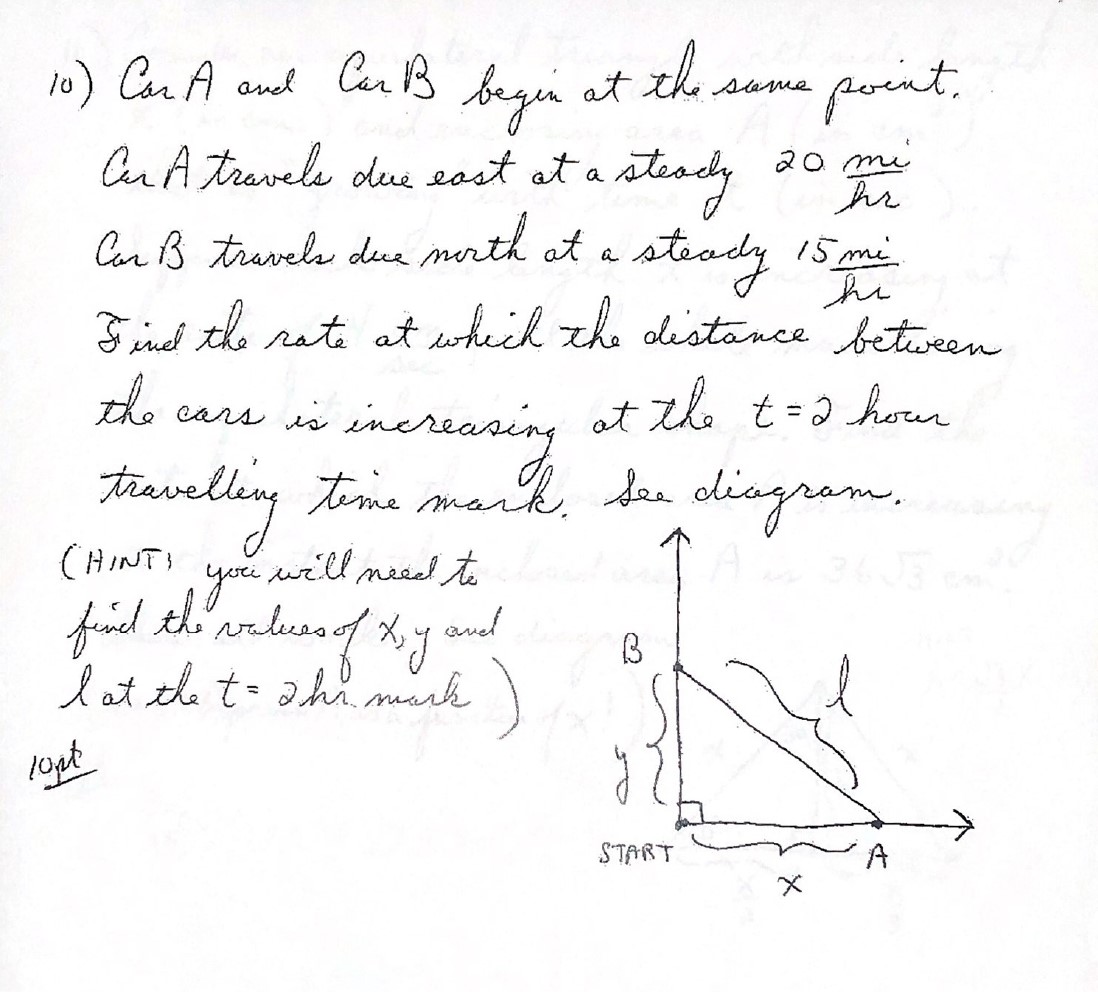 10) Car A and Car B begin at the same point.
Car A travels due east at a steady 20 mi/hr
Car B travels due north at a steady 15 mi/hr
Find the rate at which the distance between
the cars is increasing at the t=2 hour
travelling time mark. See diagram.
(HINT: you will need to
find the values of x, y and
l at the t= 2 hr. mark)
10pt
B
l
y
START
A
x